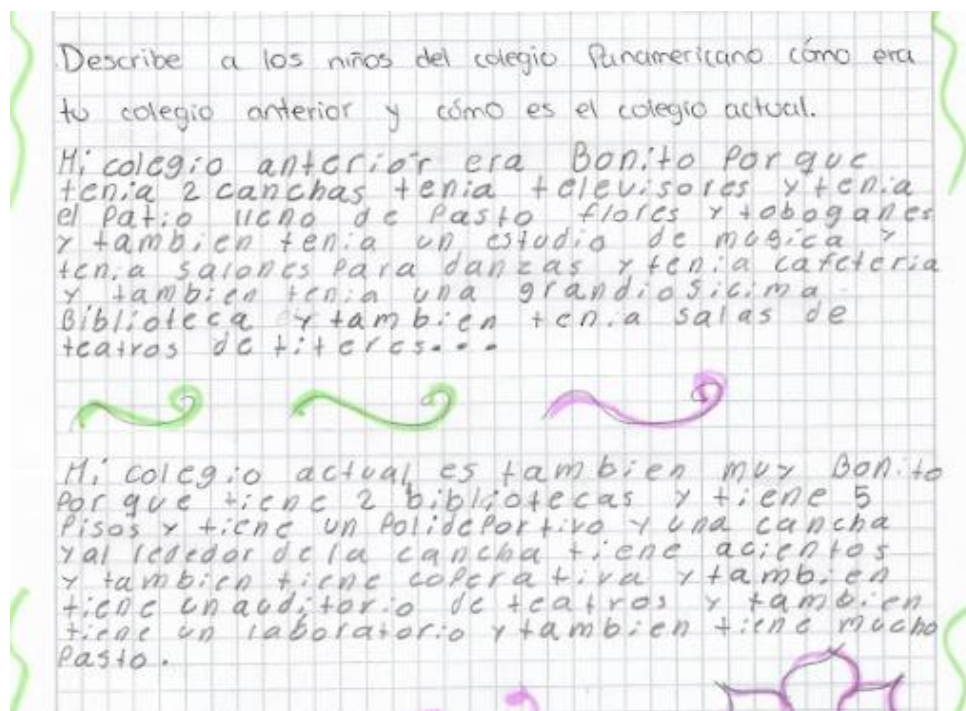 Describe a los niños del colegio Panamericano cómo era
tu colegio anterior y cómo es el colegio actual.
Mi colegio anterior era Bonito Por que
tenia 2 canchas tenia televisores y tenia
el Patio lleno de Pasto flores y toboganes
y tambien tenia un estudio de musica y
tenia salones Para danzas y tenia cafeteria
y tambien tenia una grandiosicima
Biblioteca y tambien tenia salas de
teatros de titeres...
Mi colegio actual es tambien muy Bonito
Por que tiene 2 bibliotecas y tiene 5
Pisos y tiene un Polideportivo y una cancha
y al rededor de la cancha tiene acientos
y tambien tiene coperativa y tambien
tiene un auditorio de teatros y tambien
tiene un laboratorio y tambien tiene mucho
Pasto.